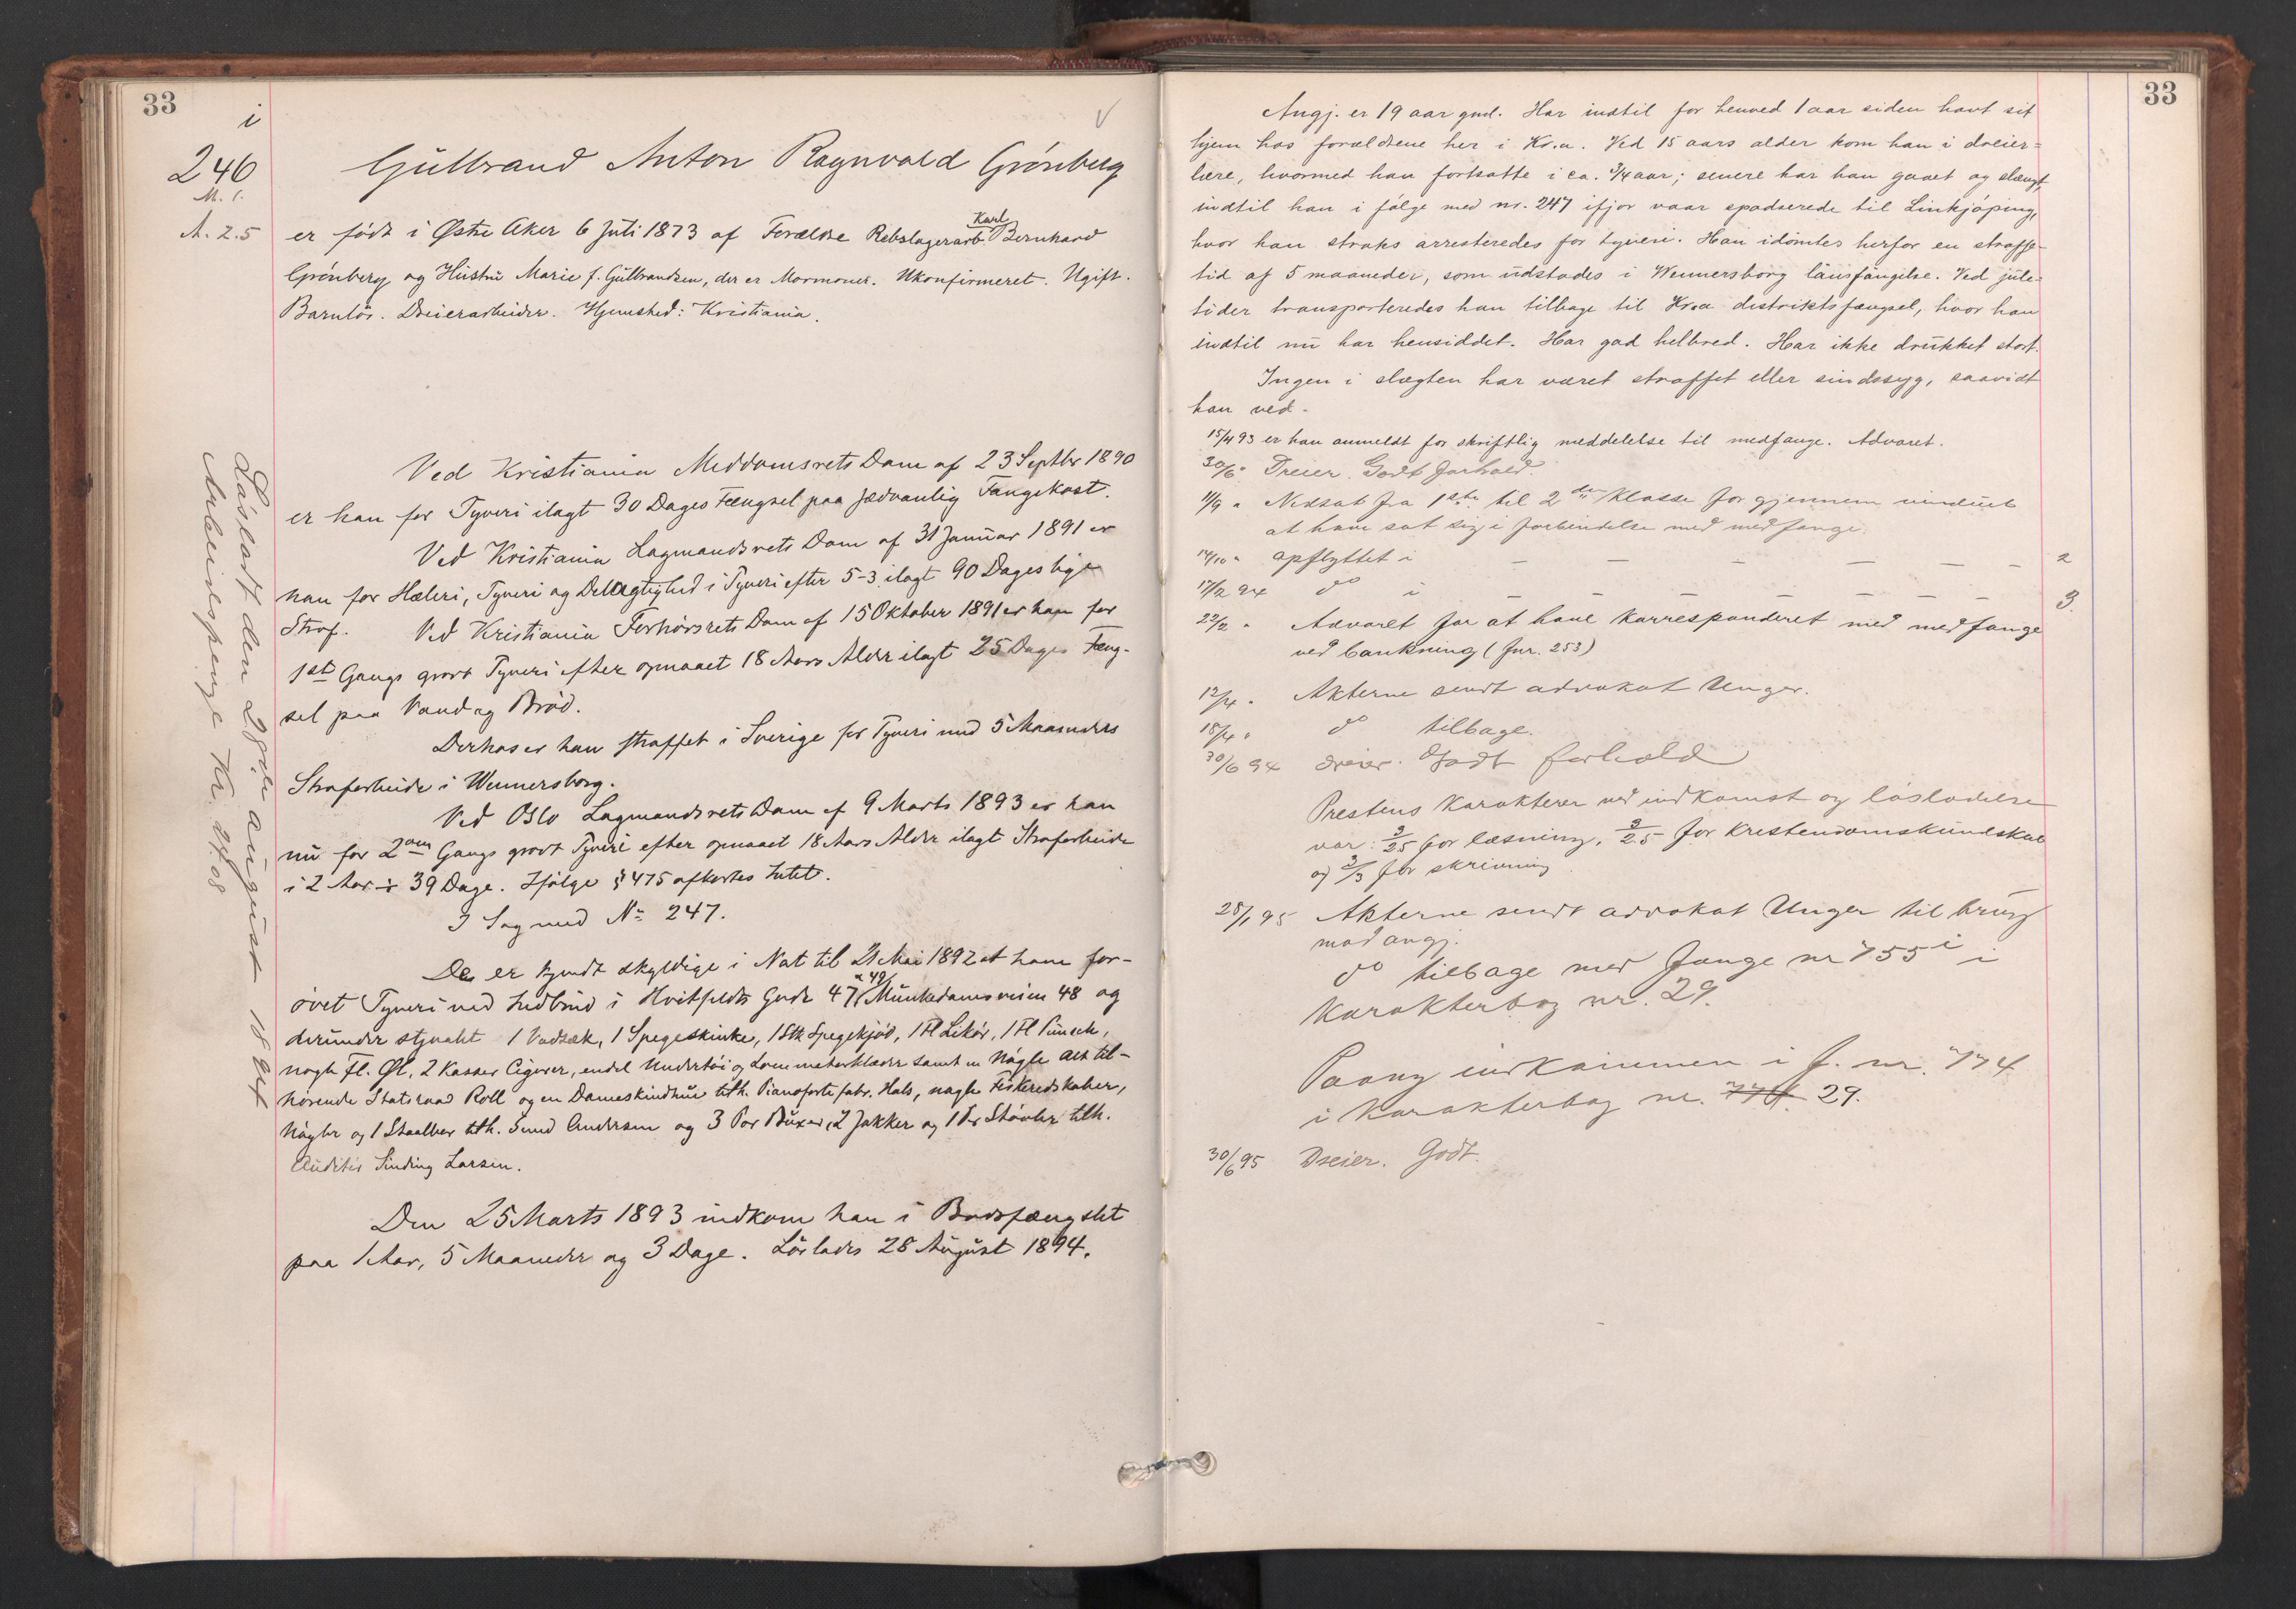 33
i
246
M. 1.
A. 2.5
Gulbrand Anton Ragnvald Grønberg
er født i Østre Aker 6 Juli 1873 af Forældre Rebslagerarb. Karl Bernhard
Grønberg og Hustru Marie f. Gulbrandsen, der er Mormoner. Ukonfirmeret. Ugift.
Barnløs. Dreierarbeider. Hjemsted: Kristiania.
Ved Kristiania Meddomsrets Dom af 23 Septbr 1890
er han for Tyveri ilagt 30 Dages Fængsel paa sædvanlig Fangekost.
Ved Kristiania Lagmandsrets Dom af 31 Januar 1891 er
han for Hæleri, Tyveri og Delagtighed i Tyveri efter 5-3 ilagt 90 Dages lige
Straf. Ved Kristiania Forhørsrets Dom af 15 Oktober 1891 er han for
1st Gangs grovt Tyveri efter opnaaet 18 Aars Alder ilagt 25 Dages Fæng-
sel paa Vand og Brød.
Derhos er han straffet i Sverige for Tyveri med 5 Maaneders
Strafarbeide i Wennersborg.
Ved Oslo Lagmandsrets Dom af 9 Marts 1893 er han
nu for 2den Gangs grovt Tyveri efter opnaaet 18 Aars Alder ilagt Strafarbeide
i 2 Aar ÷ 39 Dage. Ifølge § 475 afkortes Intet.
I Sag med No 247.
De er kjendt skyldige i Nat til 21 Mai 1892 at have for-
øvet Tyveri ved Indbrud i Hvitfeldts Gade 47 & 49, Munkedamsveien 48 og
derunder stjaalet 1 Vadsæk, 1 Spegeskinke, 1 Stk Spegekjød, 1 Fl Likør, 1 Fl Punsch,
nogle Fl. Øl, 2 Kasser Cigarer, endel Undertøi og Lommetørklæder samt en Nøgle alt til-
hørende Statsraad Roll og en Dameskindhue tilh. Pianofortefabr. Hals, nogle Fiskeredskaber,
Nøgler og 1 tilh. Andersen og 3 Par Buxer, 2 Jakker og 1 Par Støvler tilh.
Auditør Sinding Larsen.
Den 25 Marts 1893 indkom han i Bodsfængslet
paa 1 Aar, 5 Maaneder og 3 Dage. Løslades 28 August 1894.
Løsladt den 28de august 1894
Arbeidspenge Kr. 27.08
33
Angj. er 19 aar gml. Har indtil for henved 1 aar siden havt sit
hjem hos forældrene her i Kr.a. Ved 15 aars alder kom han i dreier-
lære, hvormed han fortsatte i ca. 3/4 aar; senere har han gaaet og slængt,
indtil han i følge med nr. 247 ifjor vaar spadserede til Linkjøping,
hvor han straks arresteredes for tyveri. Han idømtes herfor en straffe-
tid af 5 maaneder, som udstodes i Wennersborg länsfängelse. Ved jule-
tider transporteredes han tilbage til Kr.a distriktsfængsel, hvor han
indtil nu har hensiddet. Har god helbred. Har ikke drukket stort.
Ingen i slægten har været straffet eller sindssyg, saavidt
han ved.
15/4 93 er han anmeldt for skriftlig meddelelse til medfange. Advaret.
30/6 " Dreier. Godt forhold.
11/9 " Nedsat fra 1ste til 2den Klasse for gjennem vinduet
at have sat sig i forbindelse med medfange.
14/10 " opflyttet i — — — — — — 2
17/2 94 do i — — — — — — 3.
22/2 " Advaret for at have korresponderet med medfange
ved bankning (Jnr. 253)
12/4 " Akterne sendt advokat Unger.
18/4 " do tilbage.
30/6 94 dreier. Godt forhold
Prestens Karakterer ved indkomst og løsladelse
var: 3/2.5 for læsning, 3/2.5 for kristendomskundskab
og 3/3 for skrivning
28/1 95 Akterne sendt advokat Unger til brug
mod angj.
do tilbage med fange nr 755 i i
Karakterbog nr. 29.
Paany indkommen i f. nr. 774
i Karakterbog nr. 29.
30/6 95 Dreier. Godt.